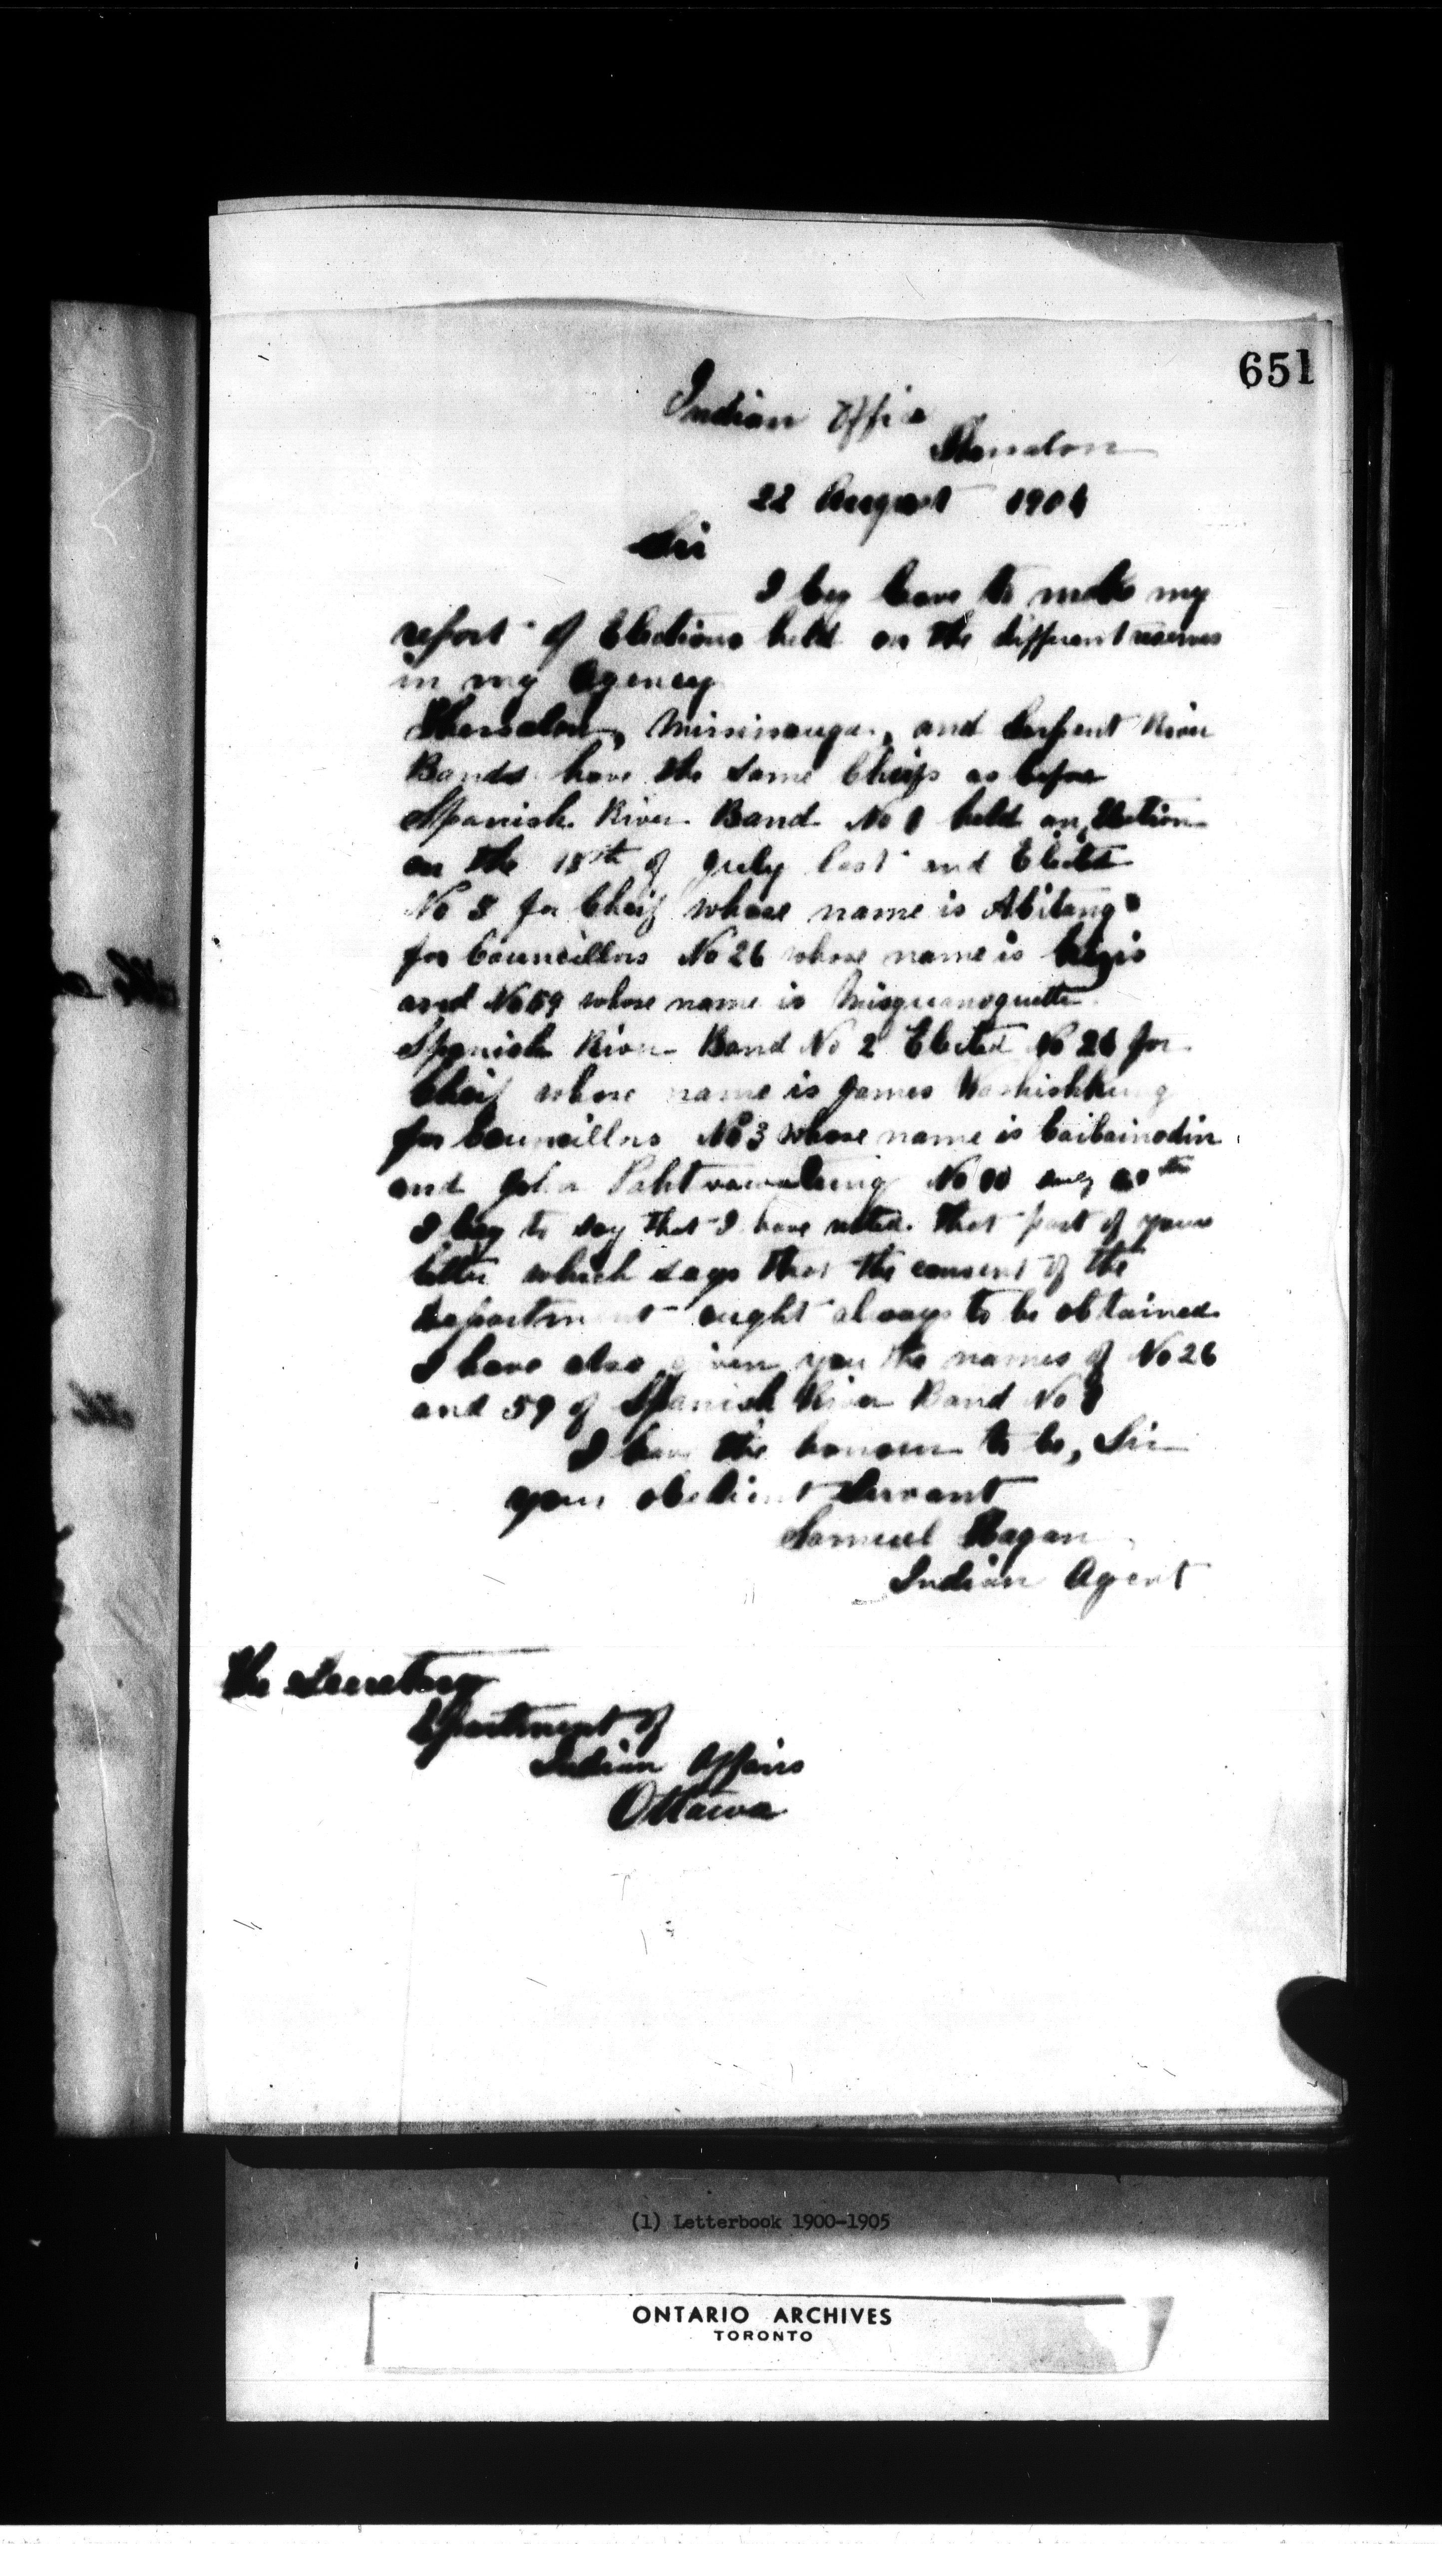 651
Indian Office
Thessalon
22 August 1904
Sir
I beg leave to make my
report of Elections held on the different reserves
in my Agency
Thessalon, Mississauga, and Serpent River
Bands have the same Cheifs as before
Spanish River Band No 1 held an Election
on the 18th of July last and Elected
No 3 for Cheif whose name is Abitung
for Councillors No 26 whose name is
and No 59 whose name is Misquanoquette
Spanish River Band No 2 Elected No 26 for
Cheif whose name is James Washishkung
for Councillors No 3 whose name is Caibainodin
and John No
I beg to say that I have noted that part of your
letter which says that the consent of the
Department ought always to be obtained
I have also given you the names of No 26
and 59 of Spanish River Band No
I have the honour to be, Sir
your obedient Servant
Samuel Hagan
Indian Agent
The Secretary
Department of
Indian Affairs
Ottawa
(1) Letterbook 1900-1905
ONTARIO ARCHIVES
TORONTO